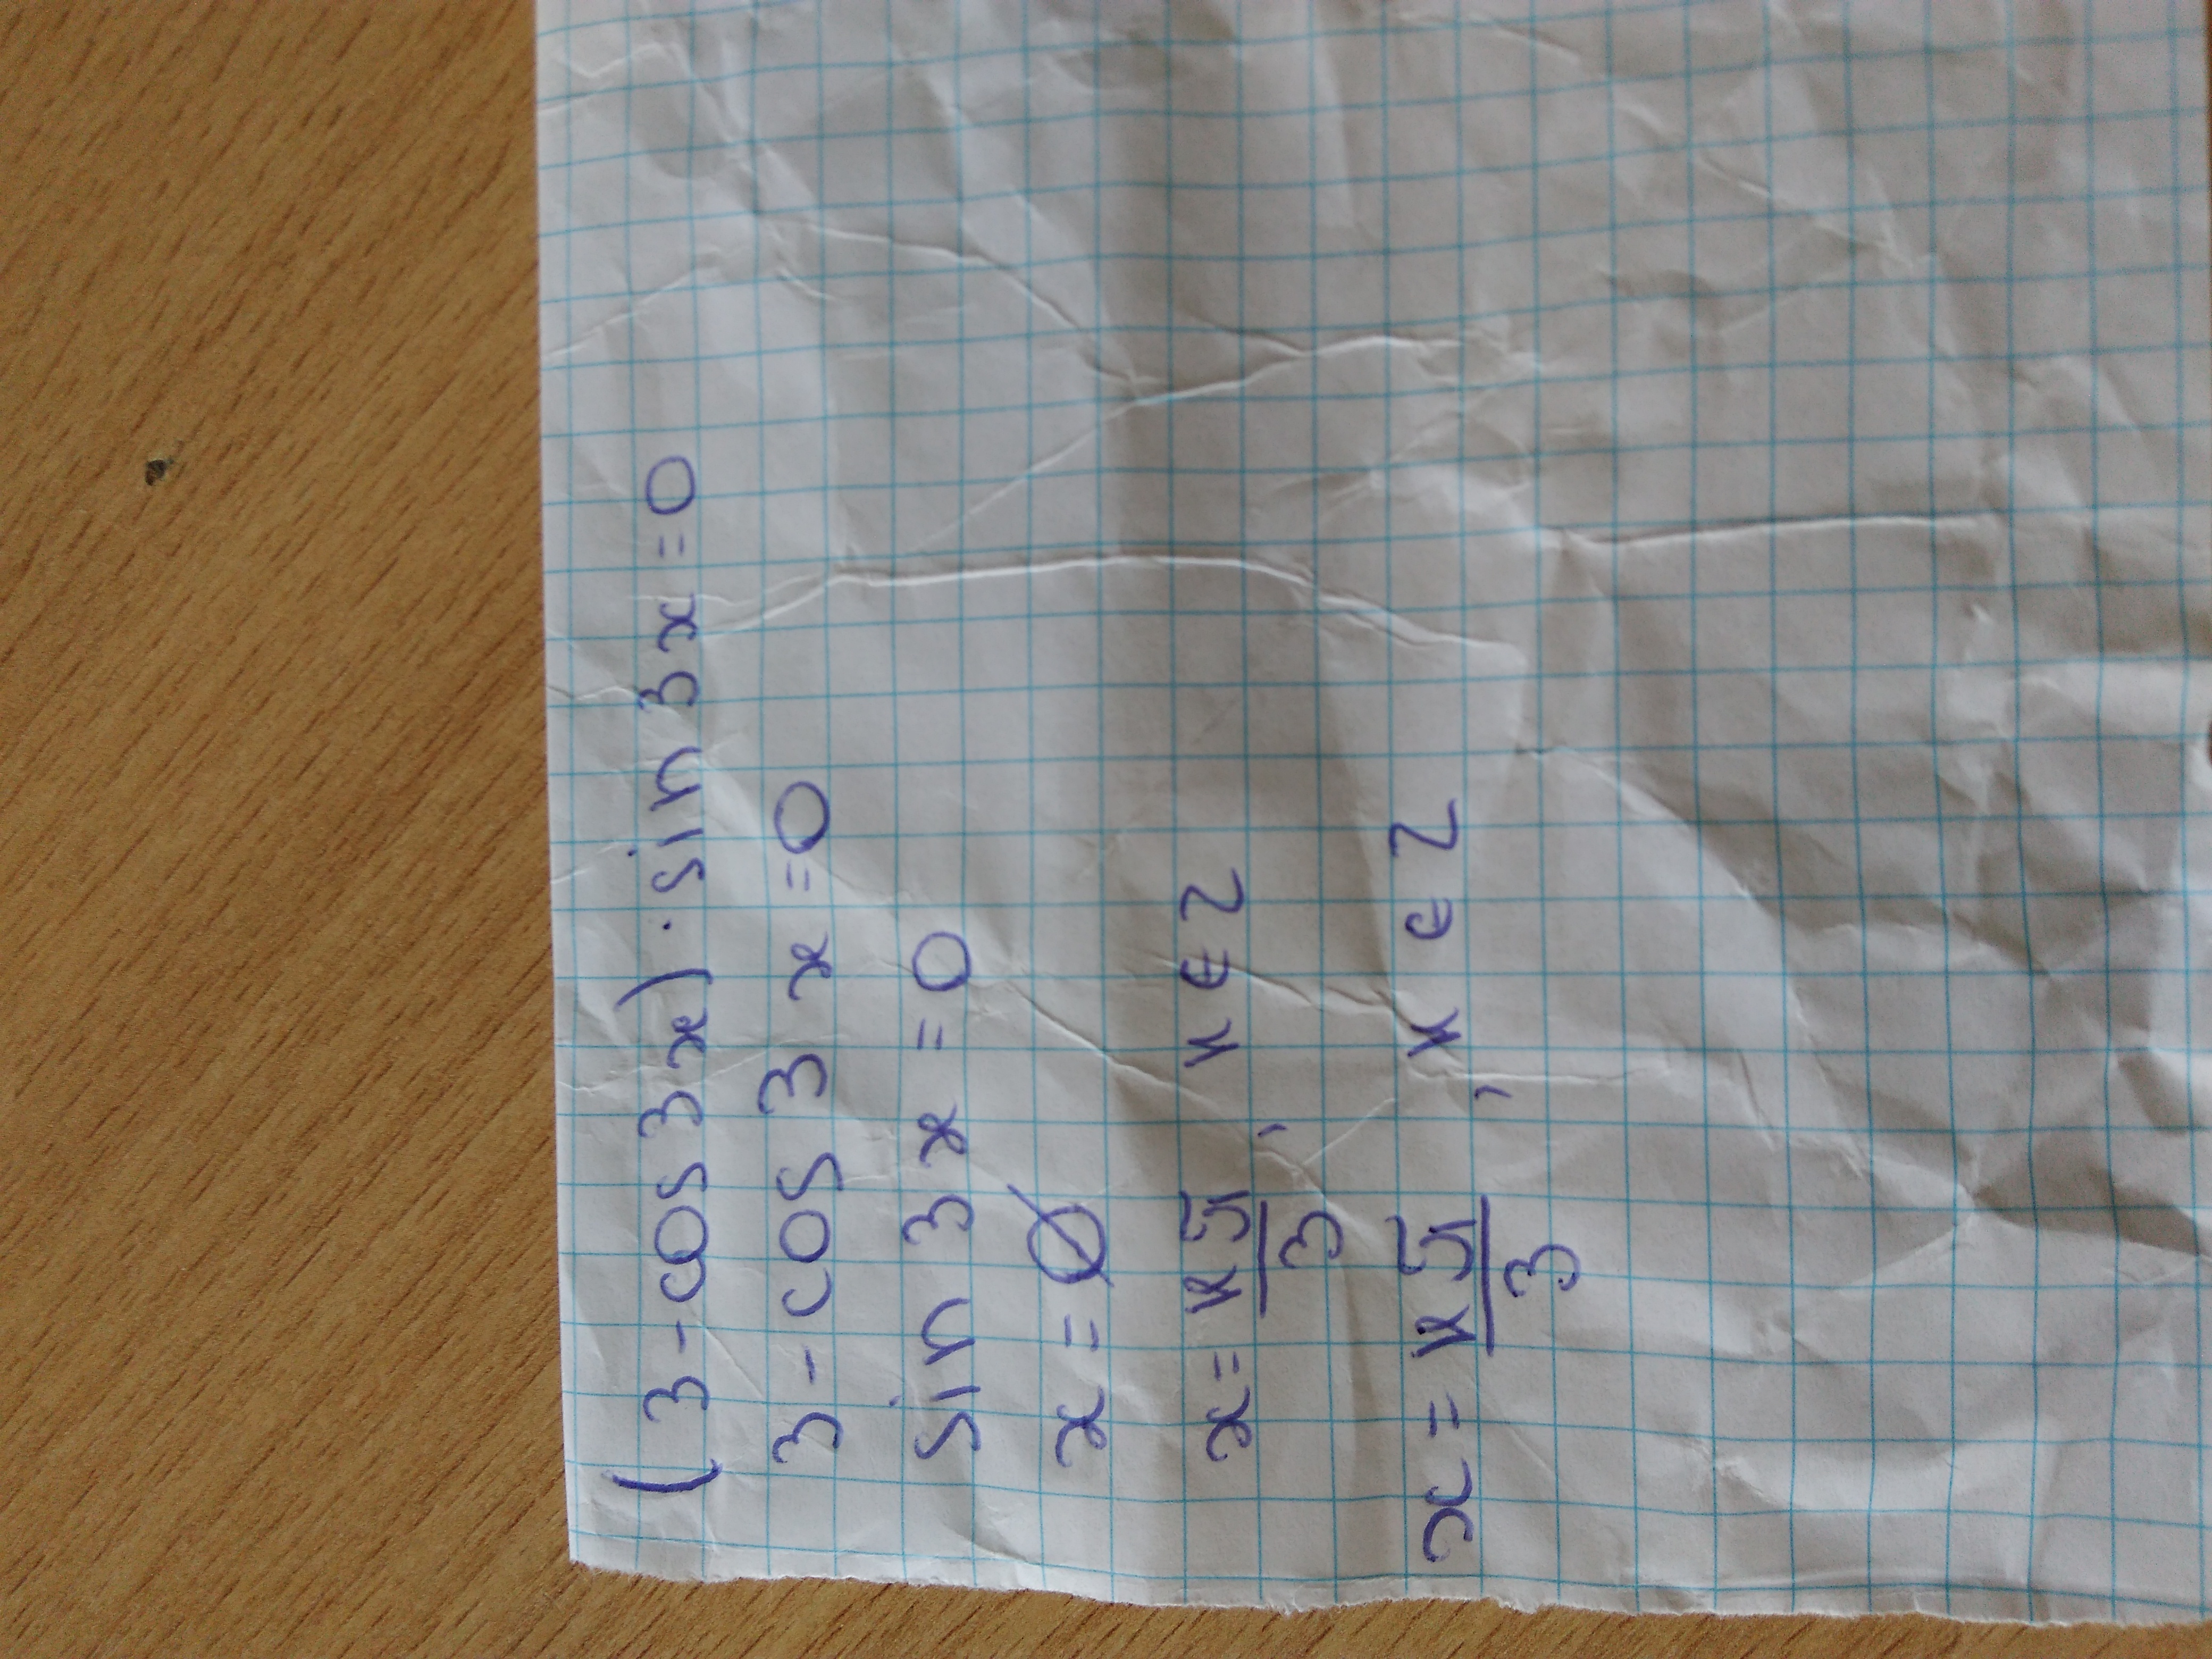 (3-cos 3x)·sin 3x=0
3-cos 3x=0
sin 3x=0
x=∅
x=кπ/3, к∈Z
x=кπ/3, к∈Z